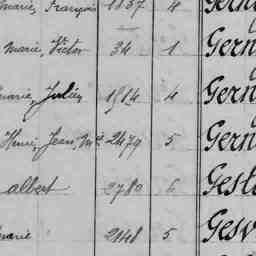 marie, François 1837 4 Gern
marie, Victor 34 1 Gern
marie, Julien 1914 4 Gern
Henri, Jean, Mie 2479 5 Gern
albert 2780 6 Gest
marie 2148 5 Gesv